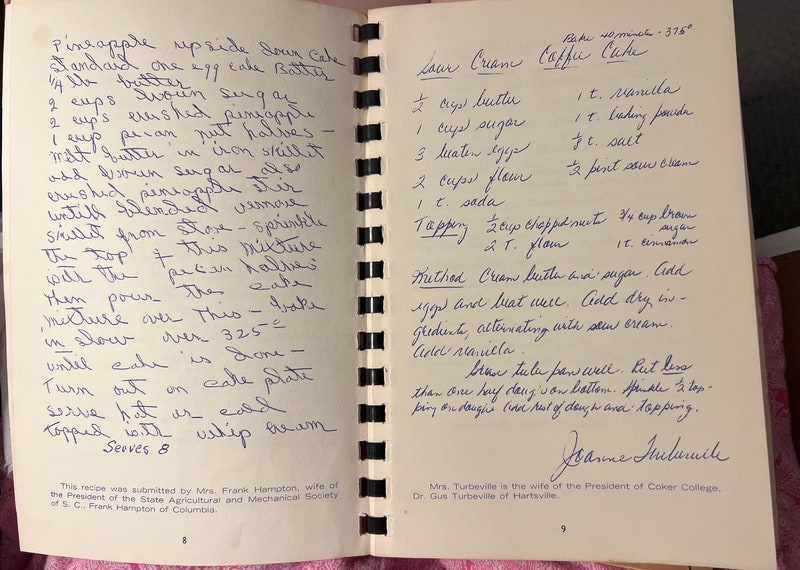 Pineapple upside down cake
Standard one egg cake Batter
1/4 lb butter
2 cups brown sugar
2 cups crushed pineapple
1 cup pecan nut halves –
Melt butter in iron skillet
add brown sugar also
crushed pineapple stir
untill blended remove
skillet from stove – sprinkle
the top of this mixture
with the pecan halves
then pour the cake
mixture over this – bake
in slow oven 325°
until cake is done –
Turn out on cake plate
serve hot or cold
topped with whip cream
Serves 8
This recipe was submitted by Mrs. Frank Hampton, wife of
the President of the State Agricultural and Mechanical Society
of S. C., Frank Hampton of Columbia.
8
Bake 40 minutes - 375°
Sour Cream Coffee Cake
1/2 cup butter 1 t. vanilla
1 cup sugar 1 t. baking powder
3 beaten eggs 1/8 t. salt
2 cups flour 1/2 pint sour cream
1 t. soda
Topping 1/2 cup chopped nuts 3/4 cup brown
sugar
2 T. flour 1 t. cinnamon
Method Cream butter and sugar. Add
eggs and beat well. Add dry in-
gredients, alternating with sour cream.
Add vanilla.
Grease tube pan well. Put less
than one half dough on bottom. Sprinkle 1/2 top-
ping on dough. Add rest of dough and topping.
Joanne Turbeville
Mrs. Turbeville is the wife of the President of Coker College,
Dr. Gus Turbeville of Hartsville.
9